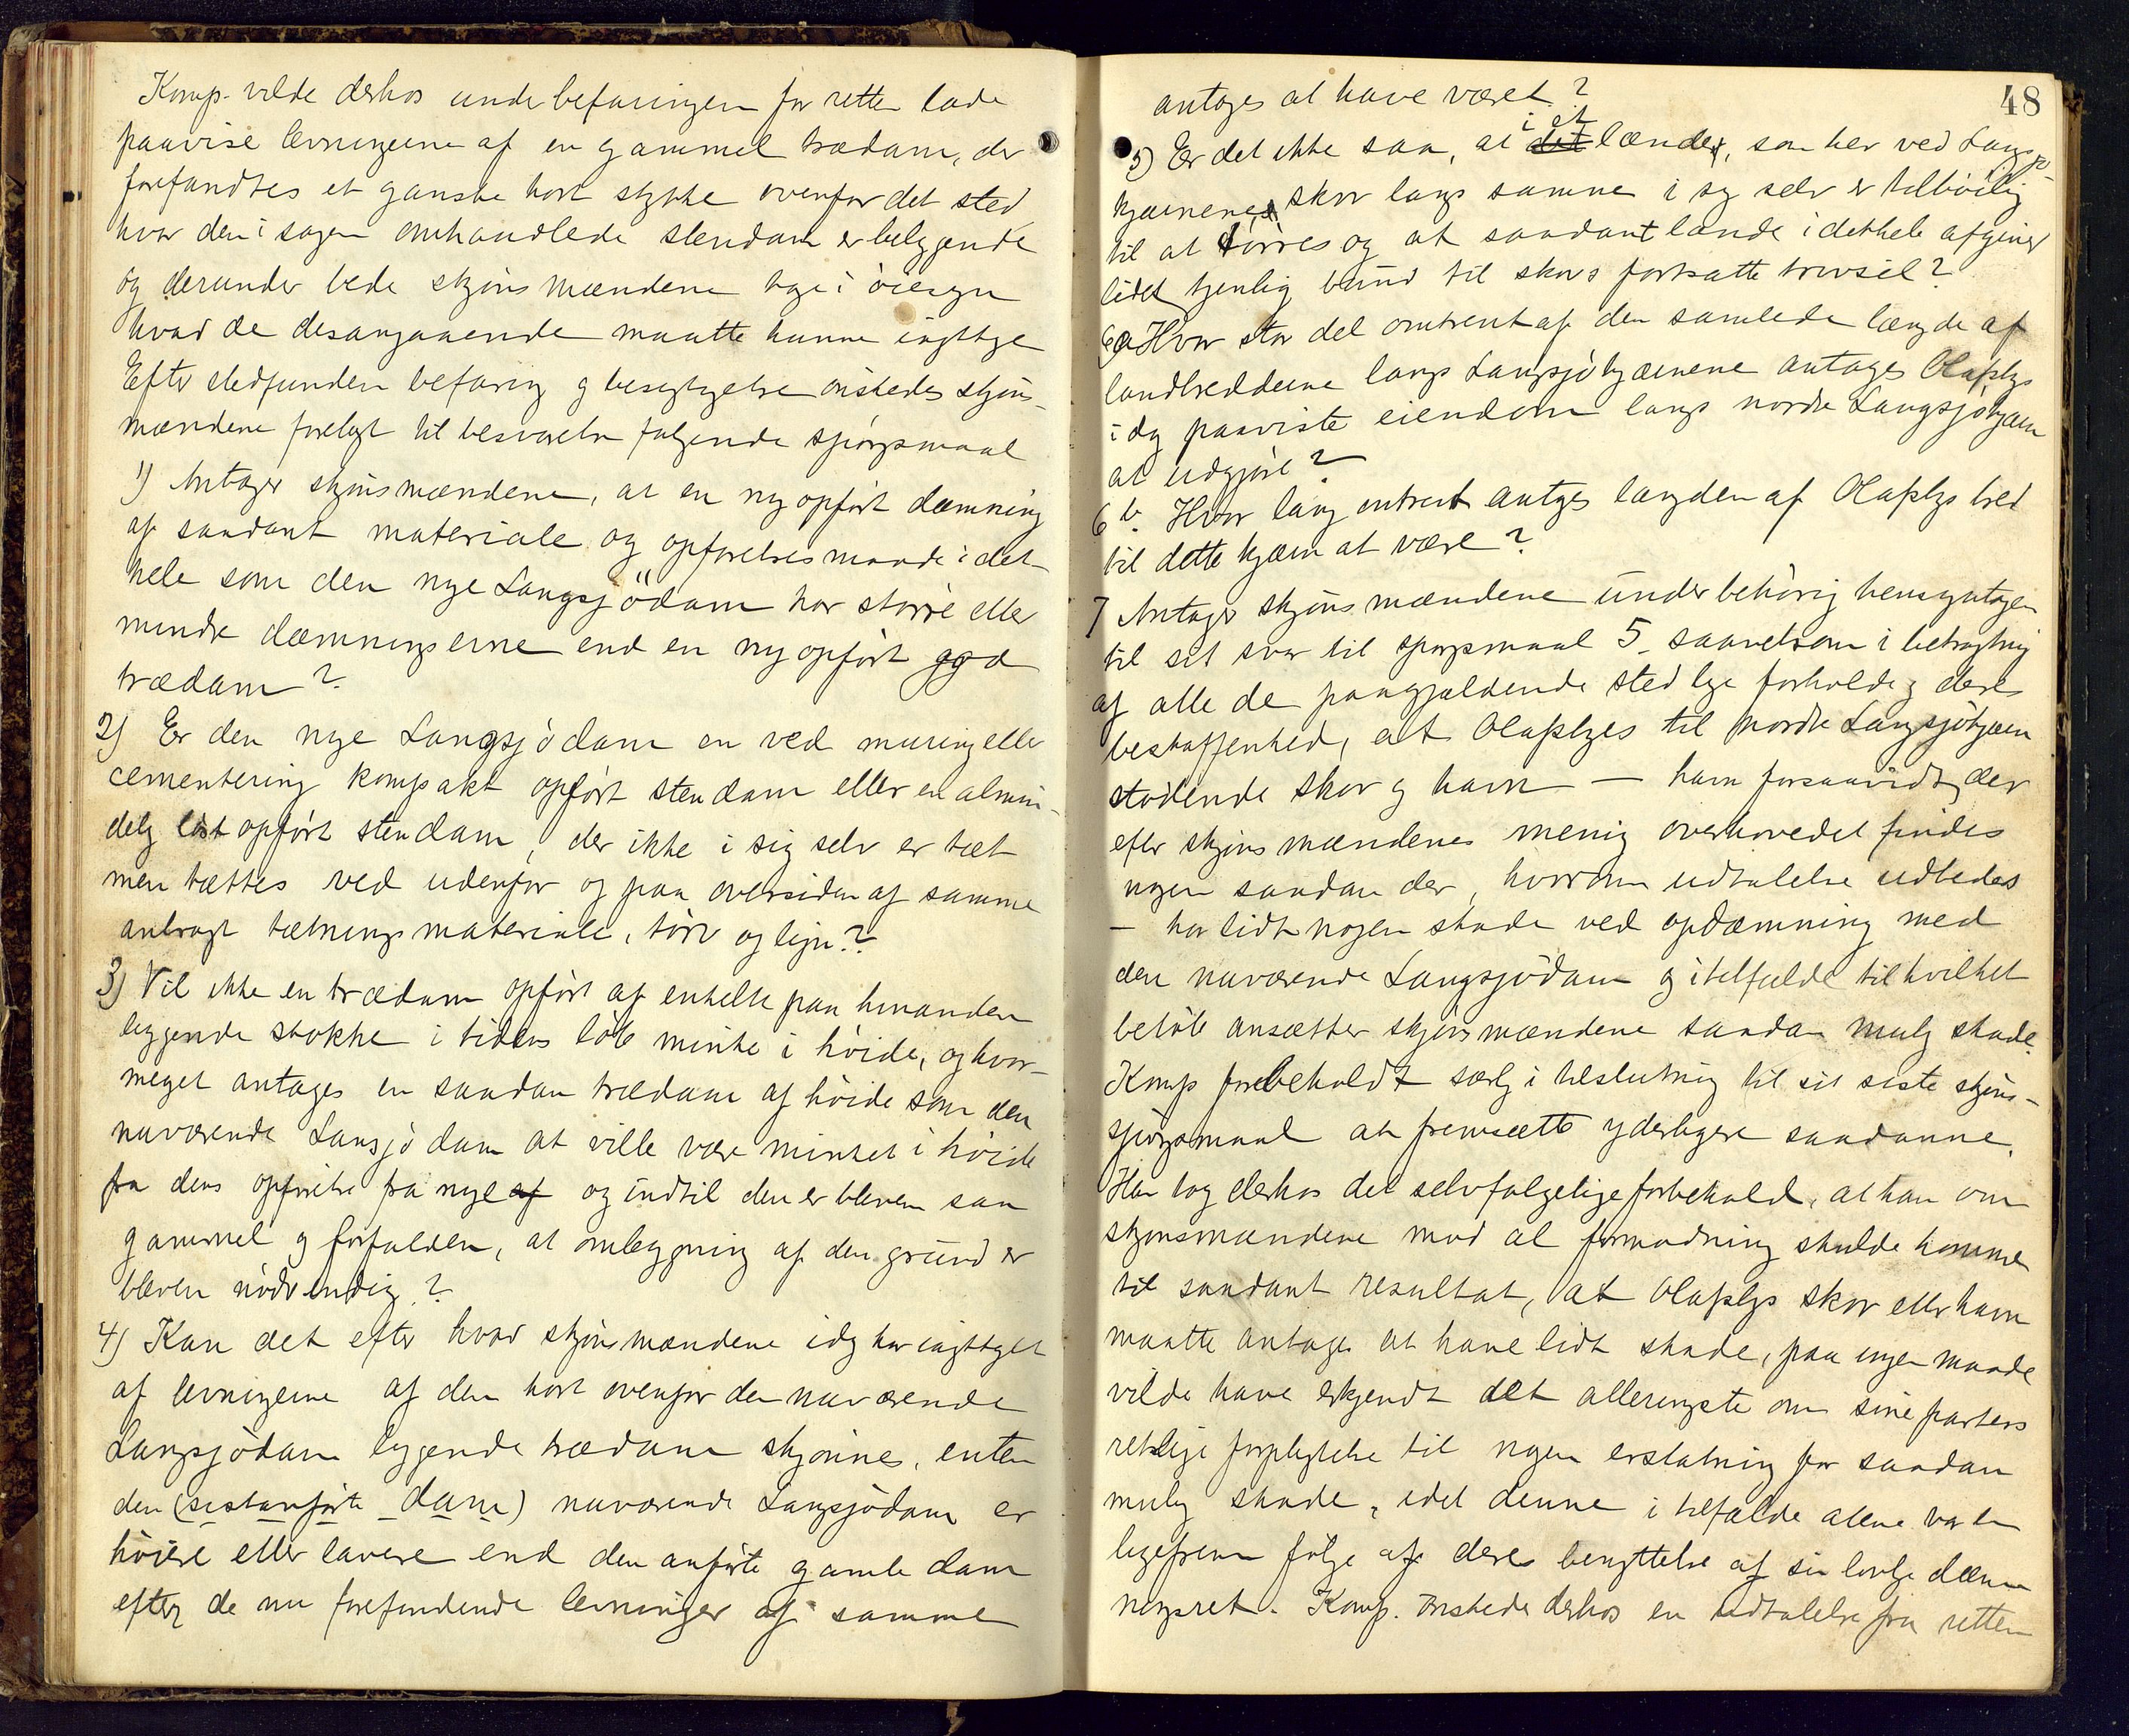 Komp. vilde derhos under befaringen for retten lade
paavise levningerne af en gammel trædam, der
forefandtes et ganske kort stykke ovenfor det sted
hvor den i sagen omhandlede stendam er beliggende
og derunder bede skjønsmændene tage i øiesyn
hvad de desangaaende maatte kunne iagttage
Efter stedfunden befaring og besigtigelse ønskedes skjøns-
mændene forelagt til besvarelse følgende spørgsmaal
1) Antager skjønsmændene, at en ny opført dæmning
af saadant materiale og opførelsesmaade i det
hele som den nye Langsjödam har større eller
mindre dæmningsevne end en ny opført god
trædam?
2) Er den nye Langsjødam en ved muring eller
cementering kompakt opført stendam eller en almin-
delig løst opført stendam, der ikke i sig selv er tæt
men tættes ved udenfor og paa oversiden af samme
anbragt tætningsmateriale, törv og lign.?
3) Vil ikke en trædam opført af enkelte paa hinanden
liggende stokke i tidens løb minke i høide, og hvor-
meget antages en saadan trædam af høide som den
nuværende Lansjødam at ville være minket i høide
fra dens opførelse fra nye af og indtil den er bleven saa
gammel og forfalden, at omlægning af den grund er
bleven nødvendig?
4) Kan det efter hvad skjønsmændene idag har iagttaget
af levningerne af den kort ovenfor den nuværende
Langsjødam liggende trædam skjønnes, enten
den (sistanførte dam) nuværende Langsjødam er
høiere eller lavere end den anførte gamle dam
efter de nu forefindende levninger af samme
48
antages at have været?
5) Er det ikke saa, at i et det lænde, som her ved Langsjø-
kjærnene, skov langs samme i sig selv er tilbøielig
til at tørres og at saadant lænde i det hele afgiver
lidet tjenlig bund til skovs fortsatte trivsel?
6a Hvor stor del omtrent af den samlede længde af
landbredderne langs Langsjøkjærnene antages Olaplys
i dag paaviste eiendom langs nordre Langsjøkjærn
at udgjøre?
6b. Hvor lang omtrent antages længden af Olaplys bred
til dette kjærn at være?
7 Antager skjønsmændene under behørig hensyntagen
til sit svar til spørgsmaal 5. saavelsom i betragtning
af alle de paagjældende stedlige forholde og deres
beskaffenhed, at Olaplyes til nordre Langsjøkjærn
stødende skov og havn — havn forsaavidt der
efter skjønsmændenes mening overhovedet findes
nogen saadan der, hvorom udtalelse udbedes
— har lidt nogen skade ved opdæmning med
den nuværende Langsjødam og i tilfælde til hvilket
beløb ansætter skjønsmændene saadan mulig skade.
Komp forebeholdt særlig i tilslutning til sit siste skjøns-
spørgsmaal at fremsætte yderligere saadanne.
Han tog derhos det selvfølgelige forbehold, at han om
skjønsmændene mod al formodning skulde komme
til saadant resultat, at Olaplys skov eller havn
maatte antages at have lidt skade, paa ingen maade
vilde have erkjendt det allerringeste om sine parters
retslige forpligtelse til nogen erstatning for saadan
mulig skade, idet denne i tilfælde alene var en
ligefrem følge af deres benyttelse af sin lovlige dæm
ningsret. Komp. ønskede derhos en udtalelse fra retten